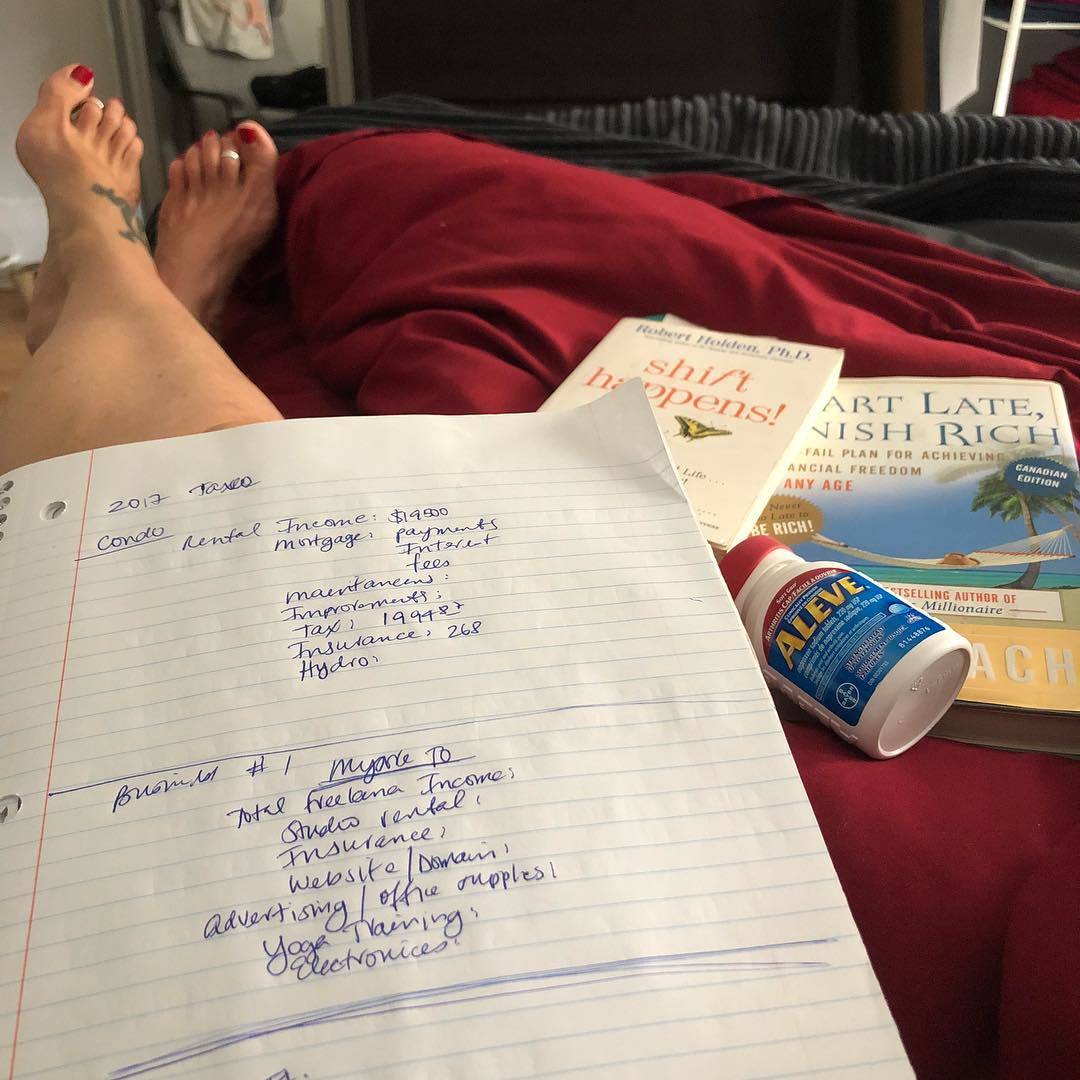 2017 Taxes
Condo Rental Income: $19500
mortgage: payments
Interest
fees
maintanens:
Improvements:
Tax: 199487
Insurance: 268
Hydro:
Business #1
Total freelance Income:
Studio rental:
Insurance:
Website/Domain:
advertising/office supplies:
Yoga Training:
Electronices:
Robert Holden, Ph.D.
shift
happens!
Life...
ART LATE,
NISH RICH
FAIL PLAN FOR ACHIEVING
ANCIAL FREEDOM
ANY AGE
CANADIAN
EDITION
Never
Late to
BE RICH!
ESTSELLING AUTHOR OF
Millionaire
ACH
ARTHRITIS CAP/FACILE À OUVRIR
ALEVE
220 mg USP
BAYER
81448876